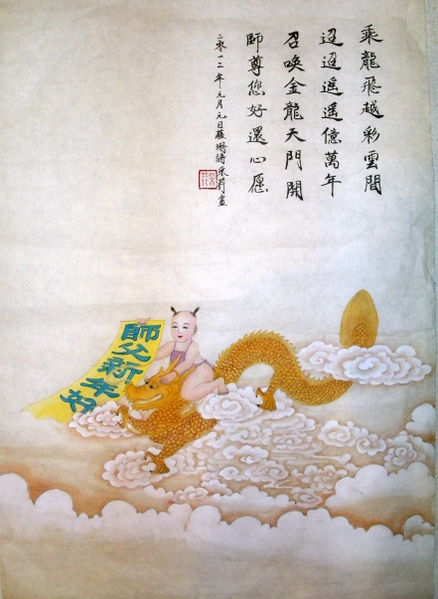 乘龍飛越彩雲間
迢迢遥遥億萬年
召喚金龍天門開
師尊您好還心愿
二零一二年元月元日
師父新年好